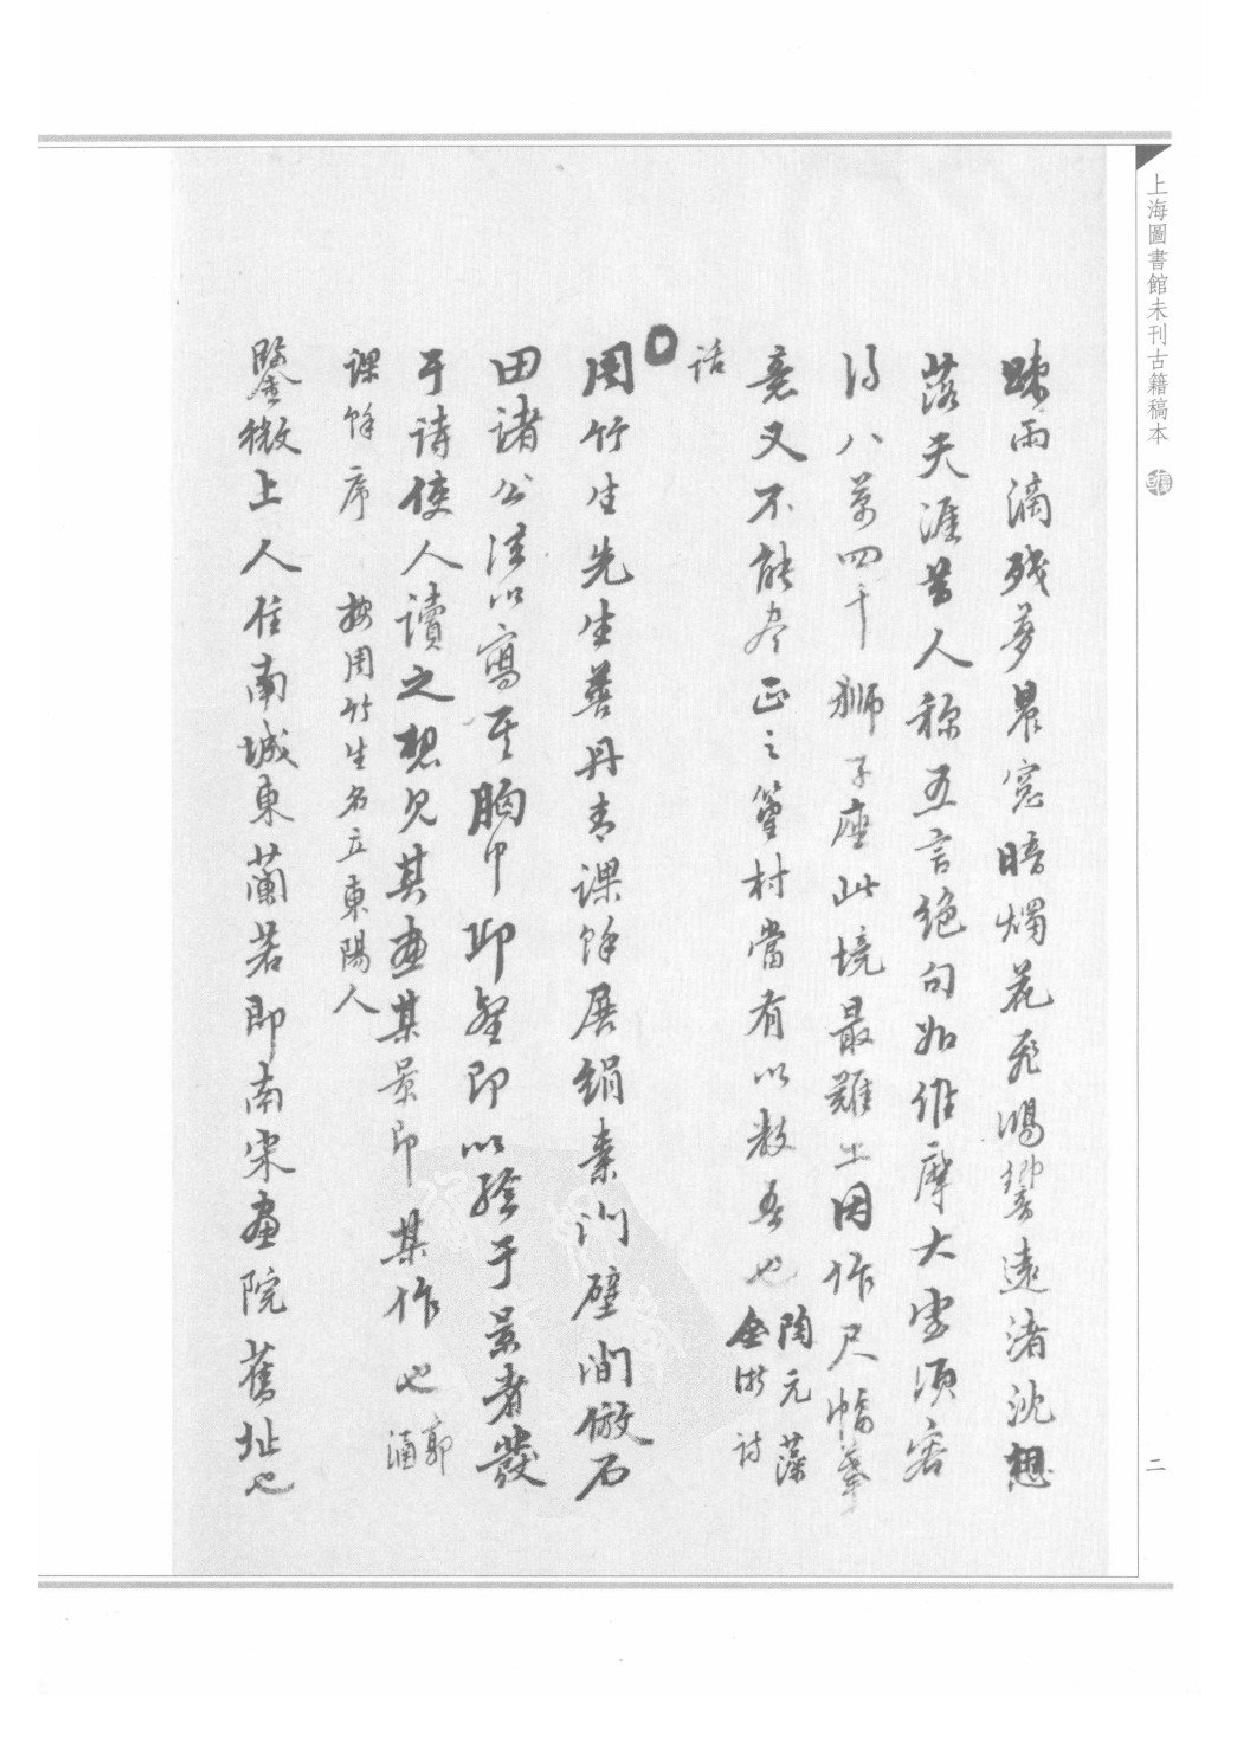 上海圖書館未刊古籍稿本
二
疎雨滴殘夢晨窓暗燭花飛鴻響遠渚沈想
落天涯昔人称五言絶句如維摩大室須容
得八萬四千獅子座此境最難出因作尺幅摹
竟又不能尽正之篁村當有以教吾也 陶元藻
全浙詩
話
周竹生先生善丹青課餘展絹素油壁間倣石
田諸公法以寫其胸中耶聖即以驗于景者發
于詩使人讀之想見其畫某景即某作也 郭
涵
課餘序 按周竹生名立東陽人
鑒微上人住南城東蘭若即南宋畫院舊址也